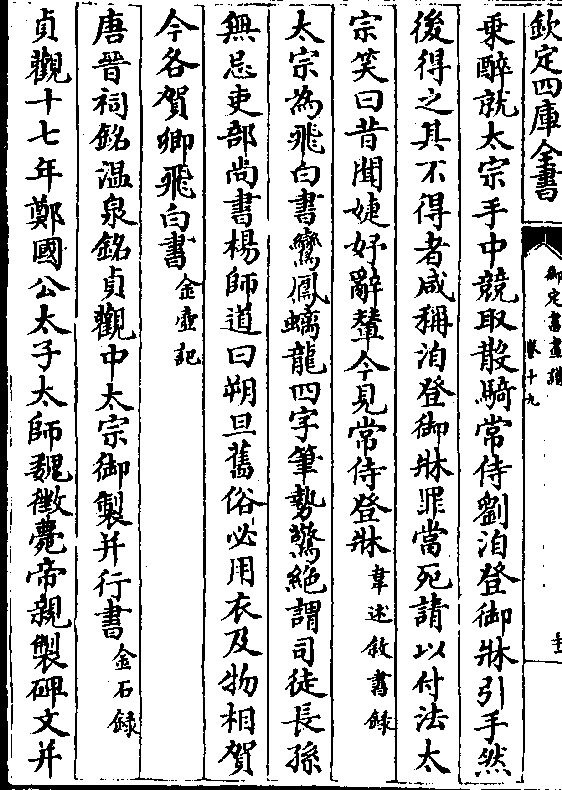 欽定四庫全書
御定書畫譜
卷十九
乗醉就太宗手中競取散騎常侍劉洎登御牀引手然
後得之其不得者咸稱洎登御牀罪當死請以付法太
宗笑曰昔聞婕妤辭輦今見常侍登牀韋述敘書録
太宗為飛白書鸞鳳螭龍四字筆勢驚絶謂司徒長孫
無忌吏部尚書楊師道曰朔旦舊俗必用衣及物相賀
今各賀卿飛白書金壺記
唐晉祠銘温泉銘貞觀中太宗御製并行書金石録
貞觀十七年鄭國公太子太師魏徵薨帝親製碑文并